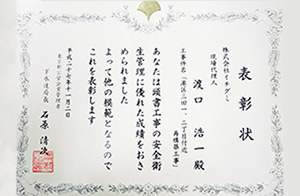 表彰状
株式会社イキタダミ
現場代理人
渡口 浩一 殿
工事件名「港区三田一、二丁目付近
再構築工事」
あなたは頭書工事の安全衛
生管理に優れた成績をおさ
められました
よって他の模範となるので
これを表彰します
平成二十七年十一月二日
東京都公営企業管理者
下水道局長
石原 清次